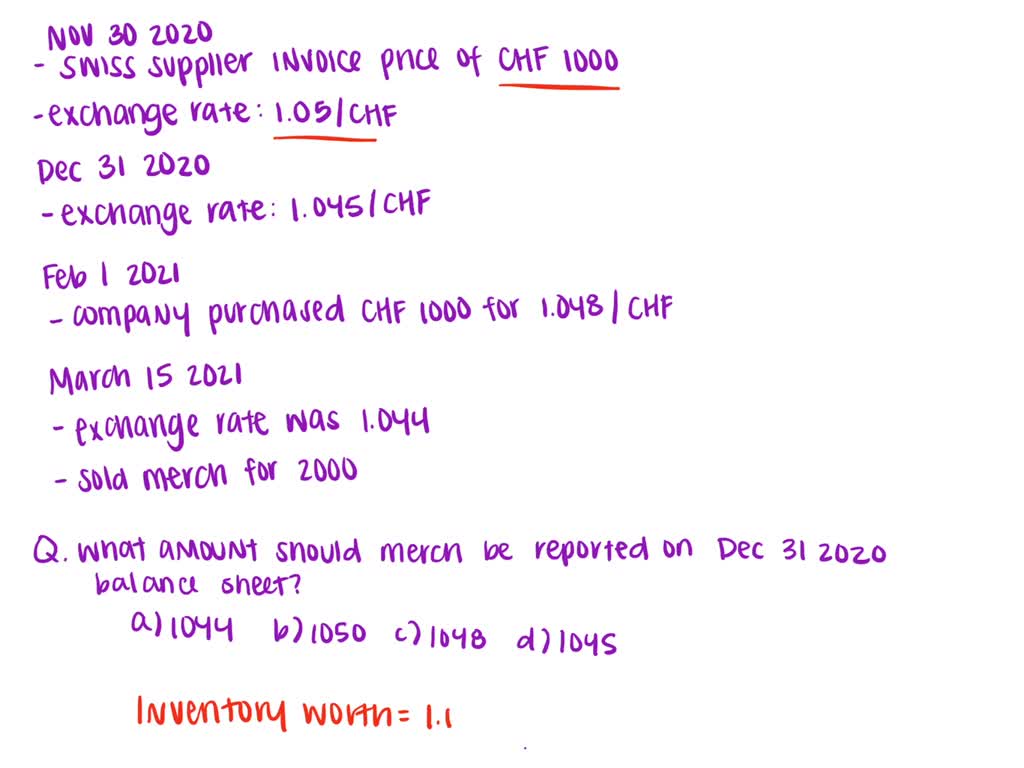 Nov 30 2020
- Swiss supplier invoice price of CHF 1000
- exchange rate: 1.05/CHF
Dec 31 2020
- exchange rate: 1.045/CHF
Feb 1 2021
- company purchased CHF 1000 for 1.048/CHF
March 15 2021
- exchange rate was 1.044
- sold merch for 2000
Q. What amount should merch be reported on Dec 31 2020
balance sheet?
a) 1044 b) 1050 c) 1048 d) 1045
Inventory worth = 1.1